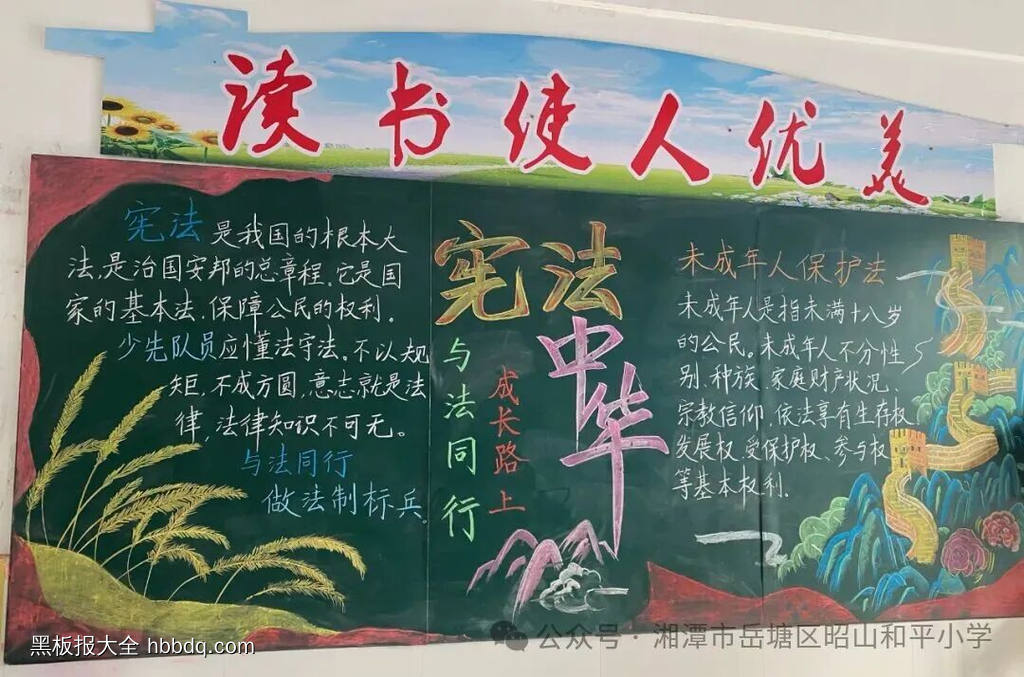 读书使人优美
宪法是我国的根本大
法,是治国安邦的总章程,它是国
家的基本法,保障公民的权利.
少先队员应懂法守法,不以规
矩,不成方圆,意志就是法
律,法律知识不可无。
与法同行
做法制标兵
宪法
中华
与法同行
成长路上
未成年人保护法
未成年人是指未满十八岁
的公民。未成年人不分性
别、种族、家庭财产状况、
宗教信仰,依法享有生存权
发展权、受保护权、参与权
等基本权利.
黑板报大全 hbbdq.com
公众号·湘潭市岳塘区昭山和平小学